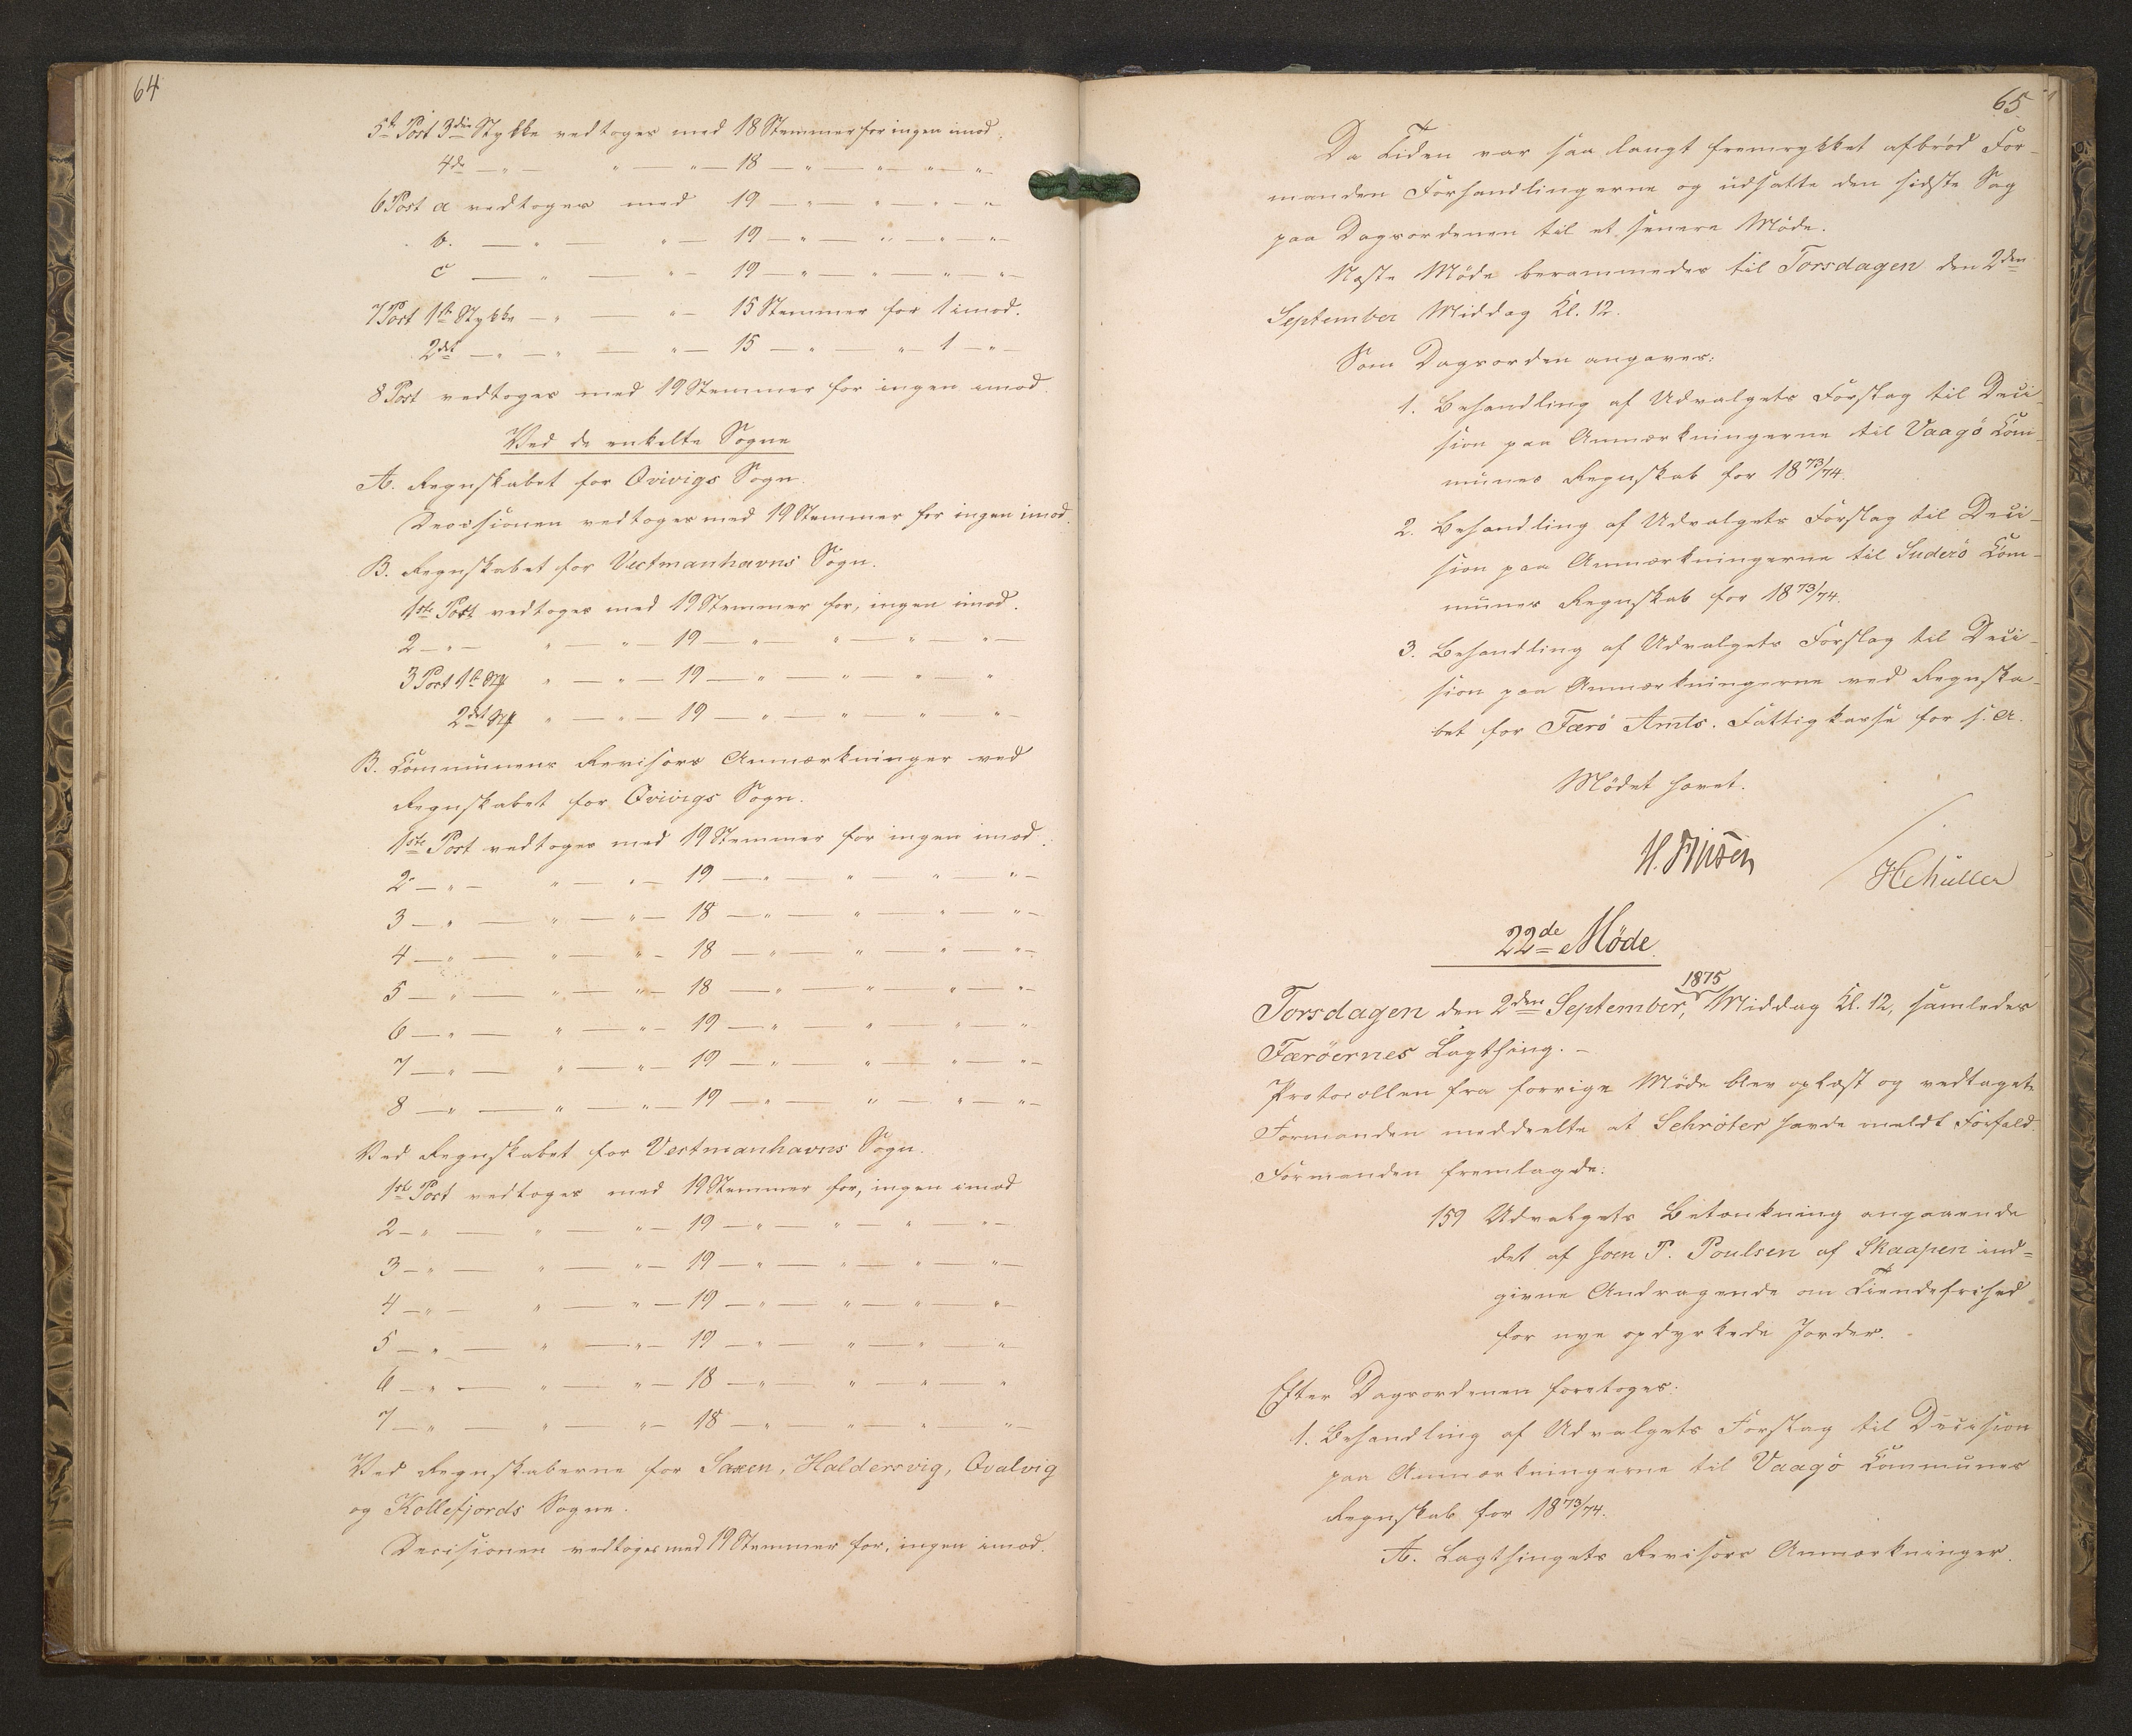 64
5te Post 3die Stykke vedtoges med 18 Stemmer for ingen imod.
4de — " — " — " — 18 — " — " — " — "
6 Post a vedtoges med 19 — " — " — " — "
b. — " — " — 19 — " — " — " — "
c — " — " — 19 — " — " — " — " —
7 Post 1ste Stykke — " — " — 15 Stemmer for 1 imod.
2det — " — " — " — 15 — " — " 1 — " —
8 Post vedtoges med 19 Stemmer for ingen imod.
Ved de enkelte Sogne
A. Regnskabet for Qvivigs Sogn.
Decisionen vedtoges med 19 Stemmer for ingen imod.
B. Regnskabet for Vestmanhavns Sogn.
1ste Post vedtoges med 19 Stemmer for, ingen imod.
2 — " — " — " — 19 — " — " — " — " —
3 Post 1ste Sty " — " — 19 — " — " — " — "
2det Sty " — " — 19 — " — " — " — " —
B. Communens Revisors Anmærkninger ved
Regnskabet for Qvivigs Sogn.
1ste Post vedtoges med 19 Stemmer for ingen imod.
2 — " — " — " — 19 — " — " — " — " —
3 — " — " — " — 18 — " — " — " — " —
4 — " — " — " — 18 — " — " — " — " —
5 — " — " — " — 18 — " — " — " — " —
6 — " — " — " — 19 — " — " — " — "
7 — " — " — " — 19 — " — " — " — " —
8 — " — " — " — 19 — " — " — " — " —
Ved Regnskabet for Vestmanhavns Sogn.
1ste Post vedtoges med 19 Stemmer for, ingen imod
2 — " — " — " — 19 — " — " — " — " —
3 — " — " — " — 19 — " — " — " — " —
4 — " — " — " — 19 — " — " — " — " —
5 — " — " — " — 19 — " — " — " — " —
6 — " — " — " — 18 — " — " — " — "
7 — " — " — " — 18 — " — " — " — " —
Ved Regnskaberne for Saxen, Haldersvig, Qvalvig
og Kollefjords Sogne.
Decisionen vedtoges med 19 Stemmer for, ingen imod.
65.
Da Tiden var saa langt fremrykket afbrød For-
manden Forhandlingerne og udsatte den sidste Sag
paa Dagsordenen til et senere Møde.
Næste Møde berammedes til Torsdagen den 2den
September Middag Kl. 12.
Som Dagsorden angaves:
1. Behandling af Udvalgets Forslag til Deci-
sion paa Anmærkningerne til Vaagø Com-
munes Regnskab for 1873/74.
2. Behandling af Udvalgets Forslag til Deci-
sion paa Anmærkningerne til Suderø Com-
munes Regnskab for 1873/74.
3. Behandling af Udvalgets Forslag til Deci-
sion paa Anmærkningerne ved Regnska-
bet for Færø Amts. Fattigkasse for s. A.
Mødet hævet.
H. Müller
22de Møde.
1875
Torsdagen den 2den September, Middag Kl. 12, samledes
Færøernes Lagthing. —
Protocollen fra forrige Møde blev oplæst og vedtaget.
Formanden meddeelte at Schrøter havde meldt Forfald.
Formanden fremlagde:
159 Udvalgets Betænkning angaaende
det af Joen P. Poulsen af Skaapen ind=
givne Andragende om Tiendefrihed
for nye opdyrkede Jorder.
Efter Dagsordenen foretoges:
1. Behandling af Udvalgets Forslag til Decision
paa Anmærkningerne til Vaagø Communes
Regnskab for 1873/74.
A. Lagthingets Revisors Anmærkninger.